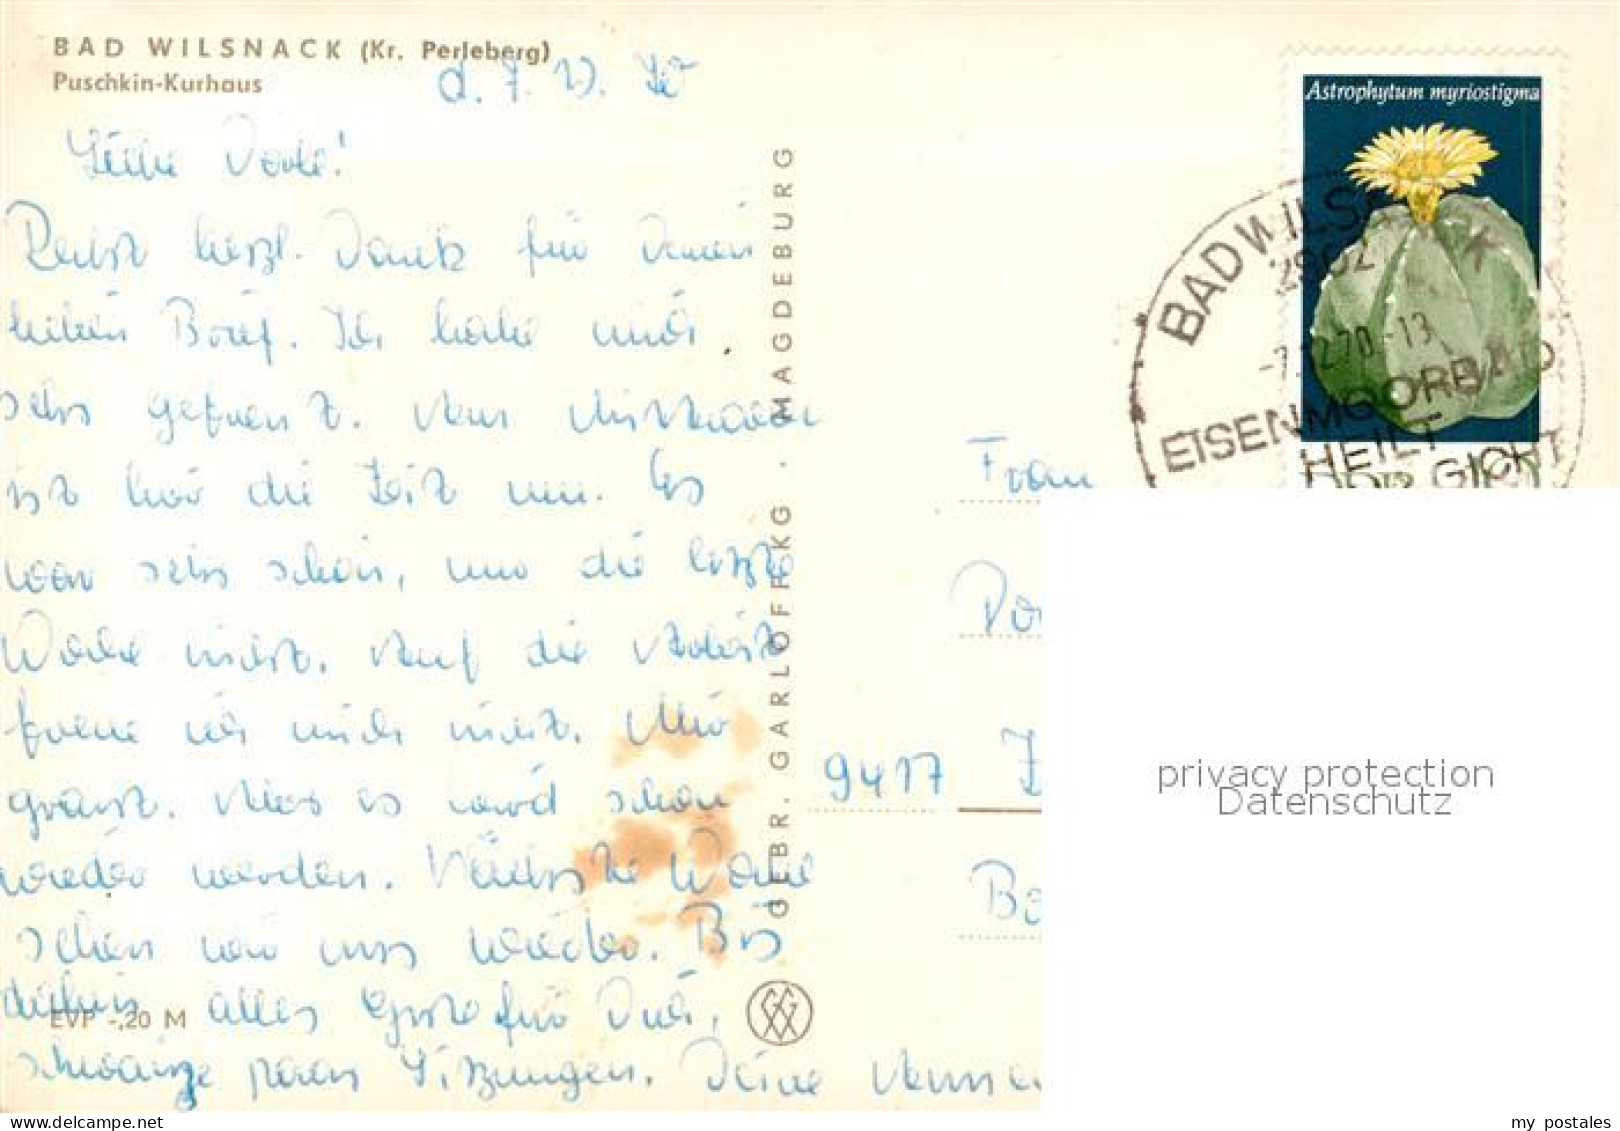 BAD WILSNACK (Kr. Perleberg)
Puschkin-Kurhaus
d. 7.
Liebe
herzl. Dank für Deinen
lieben Brief. Ich habe mich
sehr gefreut. Am Mittwoch
ist hier die Zeit um. Es
war sehr schön, nur die letzte
Woche nicht. Auf die Arbeit
freue ich mich nicht. Mir
graust. Aber es wird schon
wieder werden. Nächste Woche
sehen wir uns wieder. Bis
dahin alles Gute für Dich,
schwänze paar Sitzungen. Deine
EVP -,20 M
GEBR. GARLOFF KG · MAGDEBURG
Astrophytum myriostigma
BAD WILS
2902
-7.12.70-13
EISENMOORBAD
HEILT
GICHT
Frau
9417
privacy protection
Datenschutz
my postales